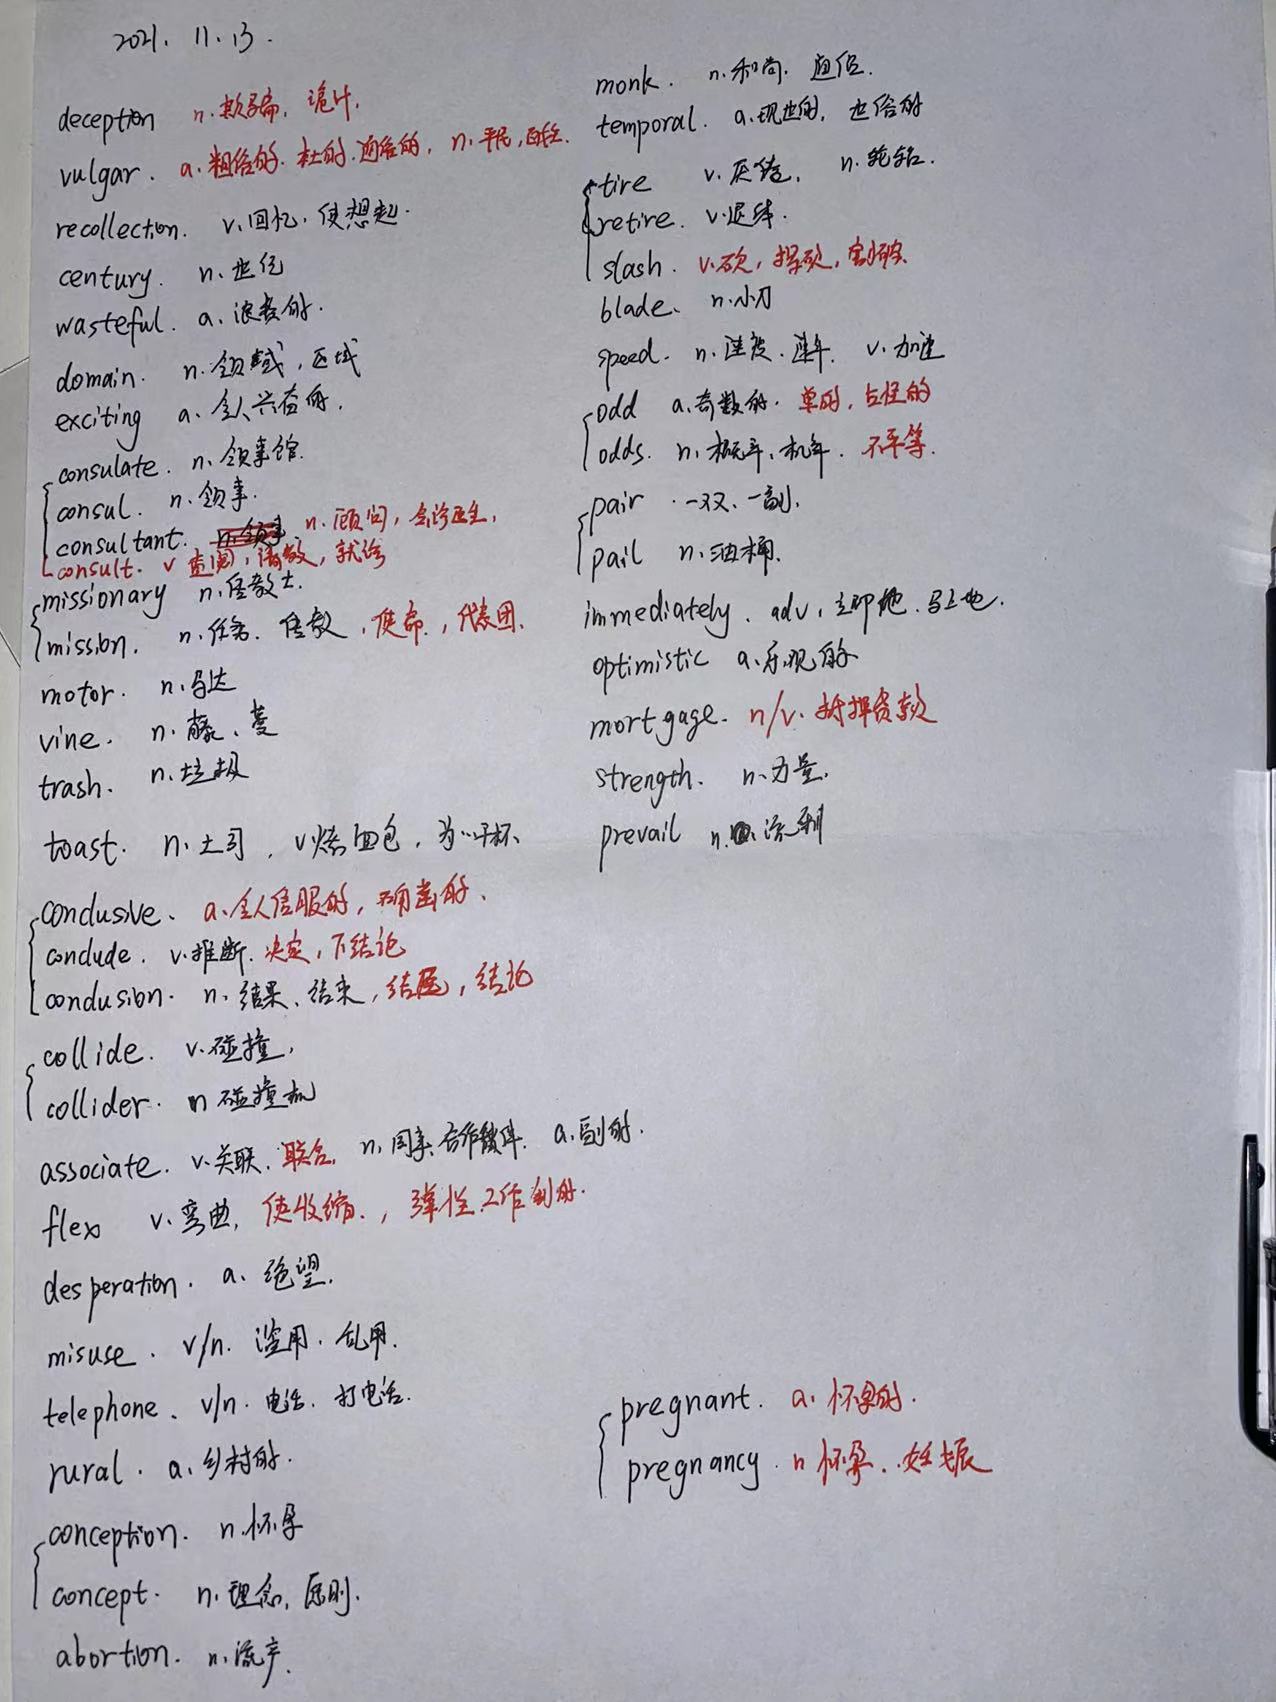 2021. 11. 13.
deception n. 欺骗, 诡计.
vulgar. a. 粗俗的. 的. 通俗的, n. 平民, 百姓.
recollection. v. 回忆, 使想起.
century. n. 世纪
wasteful. a. 浪费的.
domain. n. 领域, 区域
exciting a. 令人兴奋的.
consulate. n. 领事馆.
consul. n. 领事.
consultant. n. 顾问, 会诊医生,
consult. v 查阅, 请教, 就诊
missionary n. 传教士.
mission. n. 任务. 传教, 使命, 代表团.
motor. n. 马达
vine. n. 藤、蔓
trash. n. 垃圾
toast. n. 土司, v 烤面包, 为…干杯.
conclusive. a. 令人信服的, 确凿的.
conclude. v. 推断. 决定, 下结论
conclusion. n. 结果、结束, 结尾, 结论
collide. v. 碰撞,
collider. n 碰撞机
associate. v. 关联. 联合, n. 同事. 合作伙伴. a. 副的.
flex v. 弯曲, 使收缩. , 弹性工作制的.
desperation. a. 绝望.
misuse. v/n. 滥用. 乱用.
telephone. v/n. 电话. 打电话.
rural. a. 乡村的.
conception. n. 怀孕
concept. n. 理念, 原则.
abortion. n. 流产.
monk. n. 和尚.
temporal. a. 现世的, 世俗的
tire v. 厌倦, n. 轮胎.
retire. v. 退休.
slash. v. 砍, 挥砍, 割破.
blade. n. 小刀
speed. n. 速度. 速率. v. 加速
odd a. 奇数的. 单的, 古怪的
odds. n. 概率、机率. 不平等.
pair. 一双、一副.
pail n. 油桶.
immediately. adv. 立即地. 马上地.
optimistic a. 乐观的
mortgage. n/v. 抵押贷款
strength. n. 力量.
prevail n. 流利
pregnant. a. 怀孕的.
pregnancy. n 怀孕. 妊娠